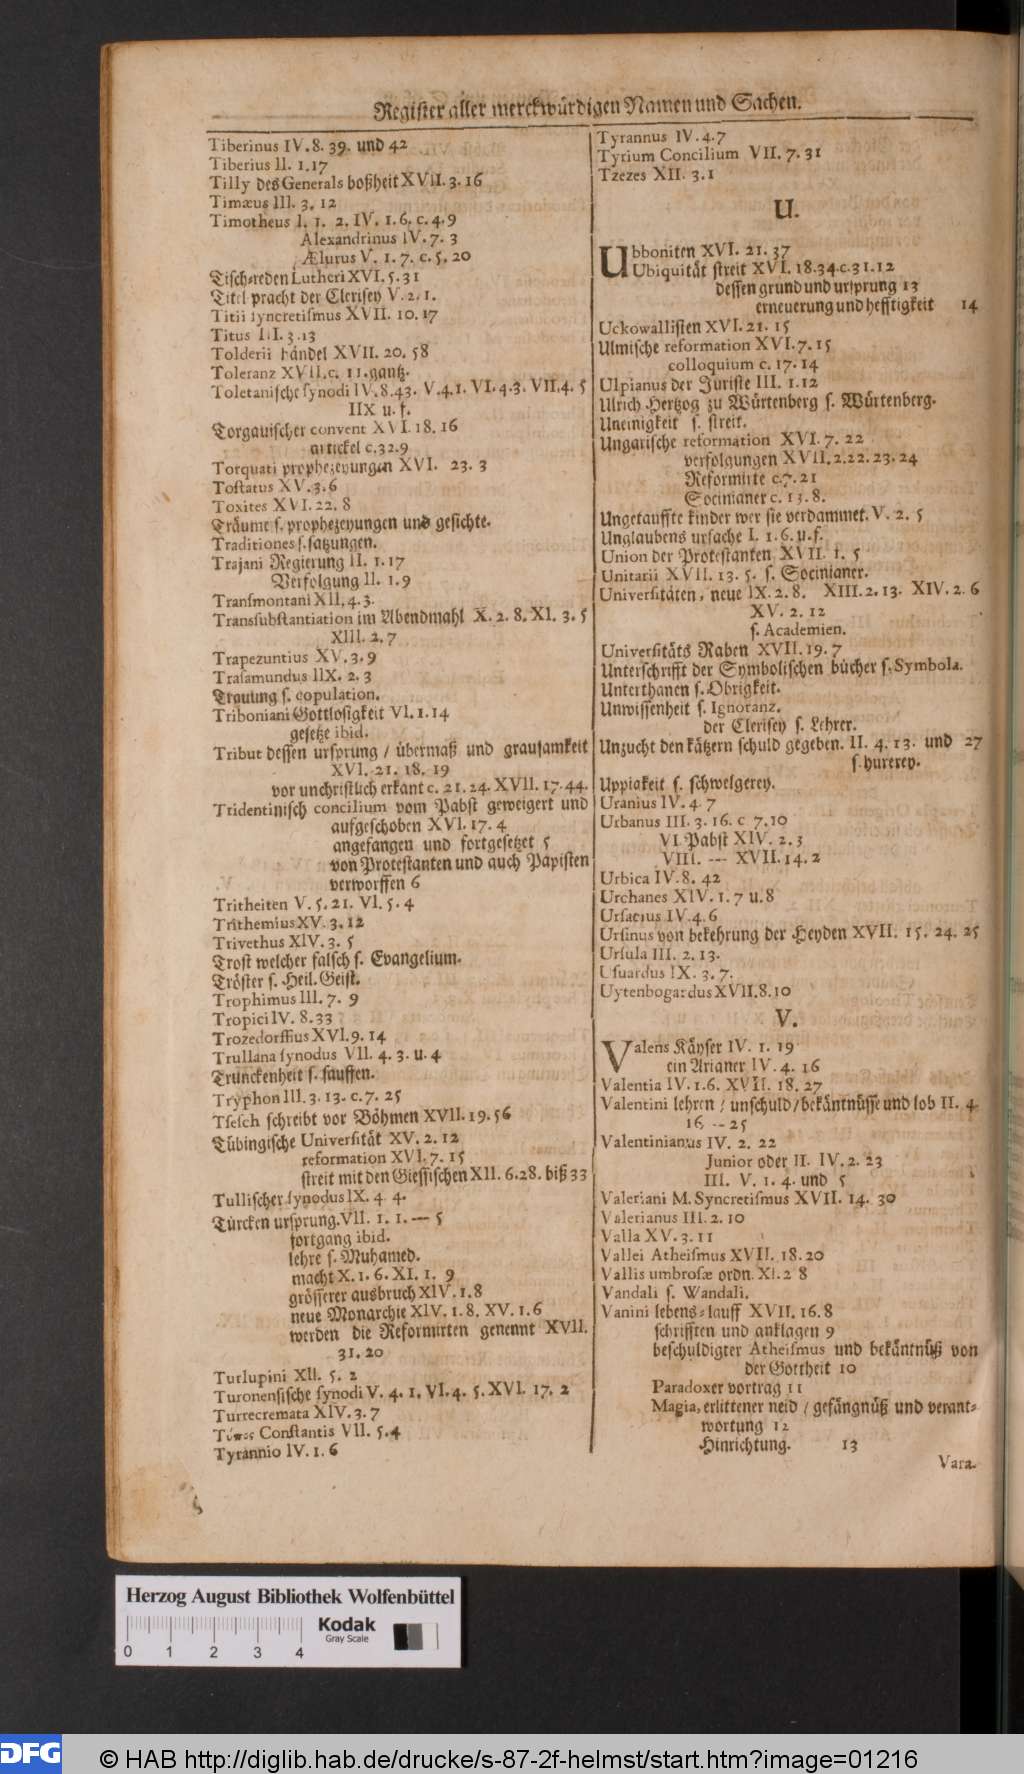 Register aller merckwürdigen Namen und Sachen.
Tiberinus IV. 8. 39. und 42
Tiberius II. 1. 17
Tilly des Generals boßheit XVII. 3. 16
Timæus III. 3. 12
Timotheus I. 1. 2. IV. 1. 6. c. 4. 9
Alexandrinus IV. 7. 3
Ælurus V. 1. 7. c. 5. 20
Tisch-reden Lutheri XVI. 5. 31
Titel pracht der Clerisey V. 2. 1.
Titii syncretismus XVII. 10. 17
Titus III. 3. 13
Tolderii händel XVII. 20. 58
Toleranz XVII. c. 11. gantz.
Toletanische synodi IV. 8. 43. V. 4. 1. VI. 4. 3. VII. 4. 5
IIX u. f.
Torgauischer convent XVI. 18. 16
artickel c. 32. 9
Torquati prophezeyungen XVI. 23. 3
Tostatus XV. 3. 6
Toxites XVI. 22. 8
Träume s. prophezeyungen und gesichte.
Traditiones s. satzungen.
Trajani Regierung II. 1. 17
Verfolgung II. 1. 9
Transmontani XII. 4. 3.
Transsubstantiation im Abendmahl X. 2. 8. XI. 3. 5
XIII. 2. 7
Trapezuntius XV. 3. 9
Trasamundus IIX. 2. 3
Trauung s. copulation.
Triboniani Gottlosigkeit VI. 1. 14
gesetze ibid.
Tribut dessen ursprung / übermaß und grausamkeit
XVI. 21. 18. 19
vor unchristlich erkant c. 21. 24. XVII. 17. 44.
Tridentinisch concilium vom Pabst geweigert und
aufgeschoben XVI. 17. 4
angefangen und fortgesetzet 5
von Protestanten und auch Papisten
verworffen 6
Tritheiten V. 5. 21. VI. 5. 4
Trithemius XV. 3. 12
Trivethus XIV. 3. 5
Trost welcher falsch s. Evangelium.
Tröster s. Heil. Geist.
Trophimus III. 7. 9
Tropici IV. 8. 33
Trozedorffius XVI. 9. 14
Trullana synodus VII. 4. 3. u. 4
Trunckenheit s. sauffen.
Tryphon III. 3. 13. c. 7. 25
Tsesch schreibt vor Böhmen XVII. 19. 56
Tübingische Universität XV. 2. 12
reformation XVI. 7. 15
streit mit den Giessischen XII. 6. 28. biß 33
Tullischer synodus IX. 4 4.
Türcken ursprung. VII. 1. 1. --- 5
fortgang ibid.
lehre s. Muhamed.
macht X. 1. 6. XI. 1. 9
grösserer ausbruch XIV. 1. 8
neue Monarchie XIV. 1. 8. XV. 1. 6
werden die Reformirten genennt XVII.
31. 20
Turlupini XII. 5. 2
Turonensische synodi V. 4. 1. VI. 4. 5. XVI. 17. 2
Turrecremata XIV. 3. 7
Τύπος Constantis VII. 5. 4
Tyrannio IV. 1. 6
Tyrannus IV. 4. 7
Tyrium Concilium VII. 7. 31
Tzezes XII. 3. 1
U.
Ubboniten XVI. 21. 37
Ubiquität streit XVI. 18. 34. c. 31. 12
dessen grund und ursprung 13
erneuerung und hefftigkeit 14
Uckowallisten XVI. 21. 15
Ulmische reformation XVI. 7. 15
colloquium c. 17. 14
Ulpianus der Juriste III. 1. 12
Ulrich Hertzog zu Würtenberg s. Würtenberg.
Uneinigkeit s. streit.
Ungarische reformation XVI. 7. 22
verfolgungen XVII. 2. 22. 23. 24
Reformirte c. 7. 21
Socinianer c. 13. 8.
Ungetauffte kinder wer sie verdammet. V. 2. 5
Unglaubens ursache I. 1. 6. u. f.
Union der Protestanten XVII. 1. 5
Unitarii XVII. 13. 5. s. Socinianer.
Universitäten, neue IX. 2. 8. XIII. 2. 13. XIV. 2. 6
XV. 2. 12
s. Academien.
Universitäts Raben XVII. 19. 7
Unterschrifft der Symbolischen bücher s. Symbola.
Unterthanen s. Obrigkeit.
Unwissenheit s. Ignoranz.
der Clerisey s. Lehrer.
Unzucht den kätzern schuld gegeben. II. 4. 13. und 27
s. hurerey.
Uppigkeit s. schwelgerey.
Uranius IV. 4 7
Urbanus III. 3. 16. c 7. 10
VI. Pabst XIV. 2. 3
VIII. --- XVII. 14. 2
Urbica IV. 8. 42
Urchanes XIV. 1. 7 u. 8
Ursacius IV. 4. 6
Ursinus von bekehrung der Heyden XVII. 15. 24. 25
Ursula III. 2. 13.
Usuardus IX. 3. 7.
Uytenbogardus XVII. 8. 10
V.
Valens Käyser IV. 1. 19
ein Arianer IV. 4. 16
Valentia IV. 1. 6. XVII. 18. 27
Valentini lehren / unschuld / bekäntnüsse und lob II. 4.
16 -- 25
Valentinianus IV. 2. 22
Junior oder II. IV. 2. 23
III. V. 1. 4. und 5
Valeriani M. Syncretismus XVII. 14. 30
Valerianus III. 2. 10
Valla XV. 3. 11
Vallei Atheismus XVII. 18. 20
Vallis umbrosæ ordn. XI. 2 8
Vandali s. Wandali.
Vanini lebens-lauff XVII. 16. 8
schrifften und anklagen 9
beschuldigter Atheismus und bekäntnüß von
der Gottheit 10
Paradoxer vortrag 11
Magia, erlittener neid / gefängnüß und verant-
wortung 12
Hinrichtung. 13
Vara.
Herzog August Bibliothek Wolfenbüttel
Kodak
Gray Scale
0 1 2 3 4
DFG © HAB http://diglib.hab.de/drucke/s-87-2f-helmst/start.htm?image=01216